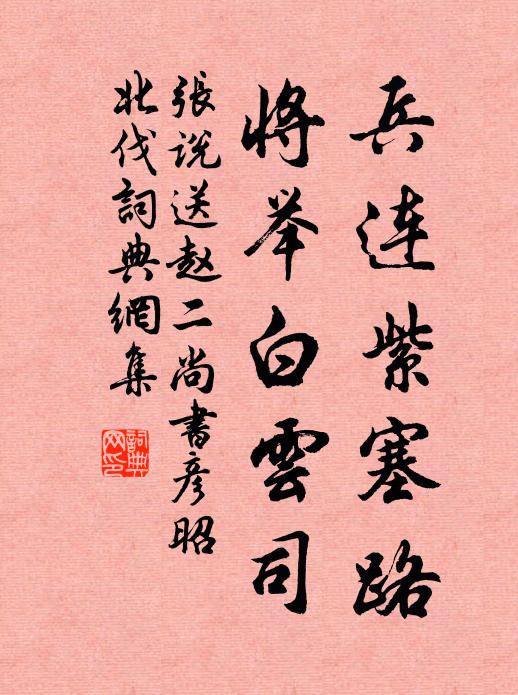 兵连紫塞路
将举白雲司
張说送赵二尚書彦昭
北伐詞典網集
詞典
网印